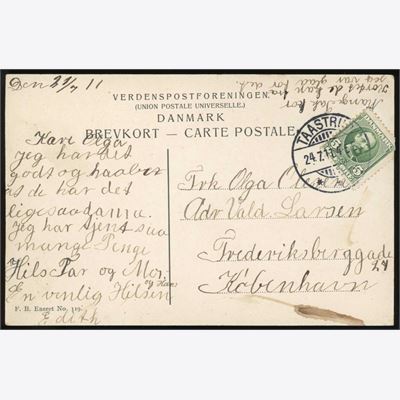 Den 24/7 11
Mange Tak for
Kortet de kan tro
jeg var glad for det.
VERDENSPOSTFORENINGEN.
(UNION POSTALE UNIVERSELLE.)
DANMARK
BREVKORT — CARTE POSTALE
TAASTRUP
24.7.11
5
Kære Olga
Jeg har det
godt og haaber
at de har det
ligesaadanne.
Jeg har tjent saa
mange Penge
Hils Far og Mor
og Hans
En venlig Hilsen
Edith
F. B. Eneret No. 119.
Frk Olga
Adr Vald. Larsen
Frederiksberggade
24
København